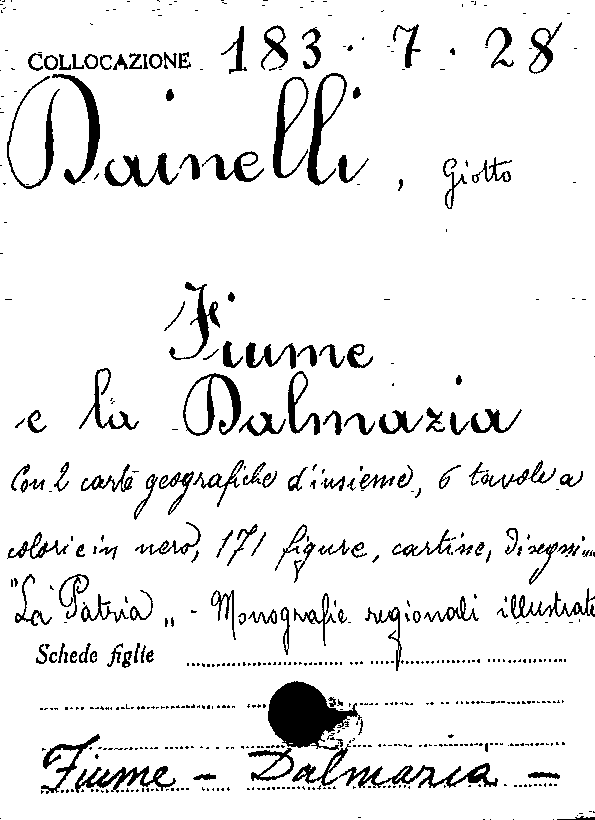 COLLOCAZIONE 183 · 7 · 28
Dainelli, Giotto
Fiume
e la Dalmazia
Con 2 carte geografiche d'insieme, 6 tavole a
colori e in nero, 171 figure, cartine, disegni...
"La Patria„ - Monografie regionali illustrate
Schede figlie
Fiume - Dalmazia -